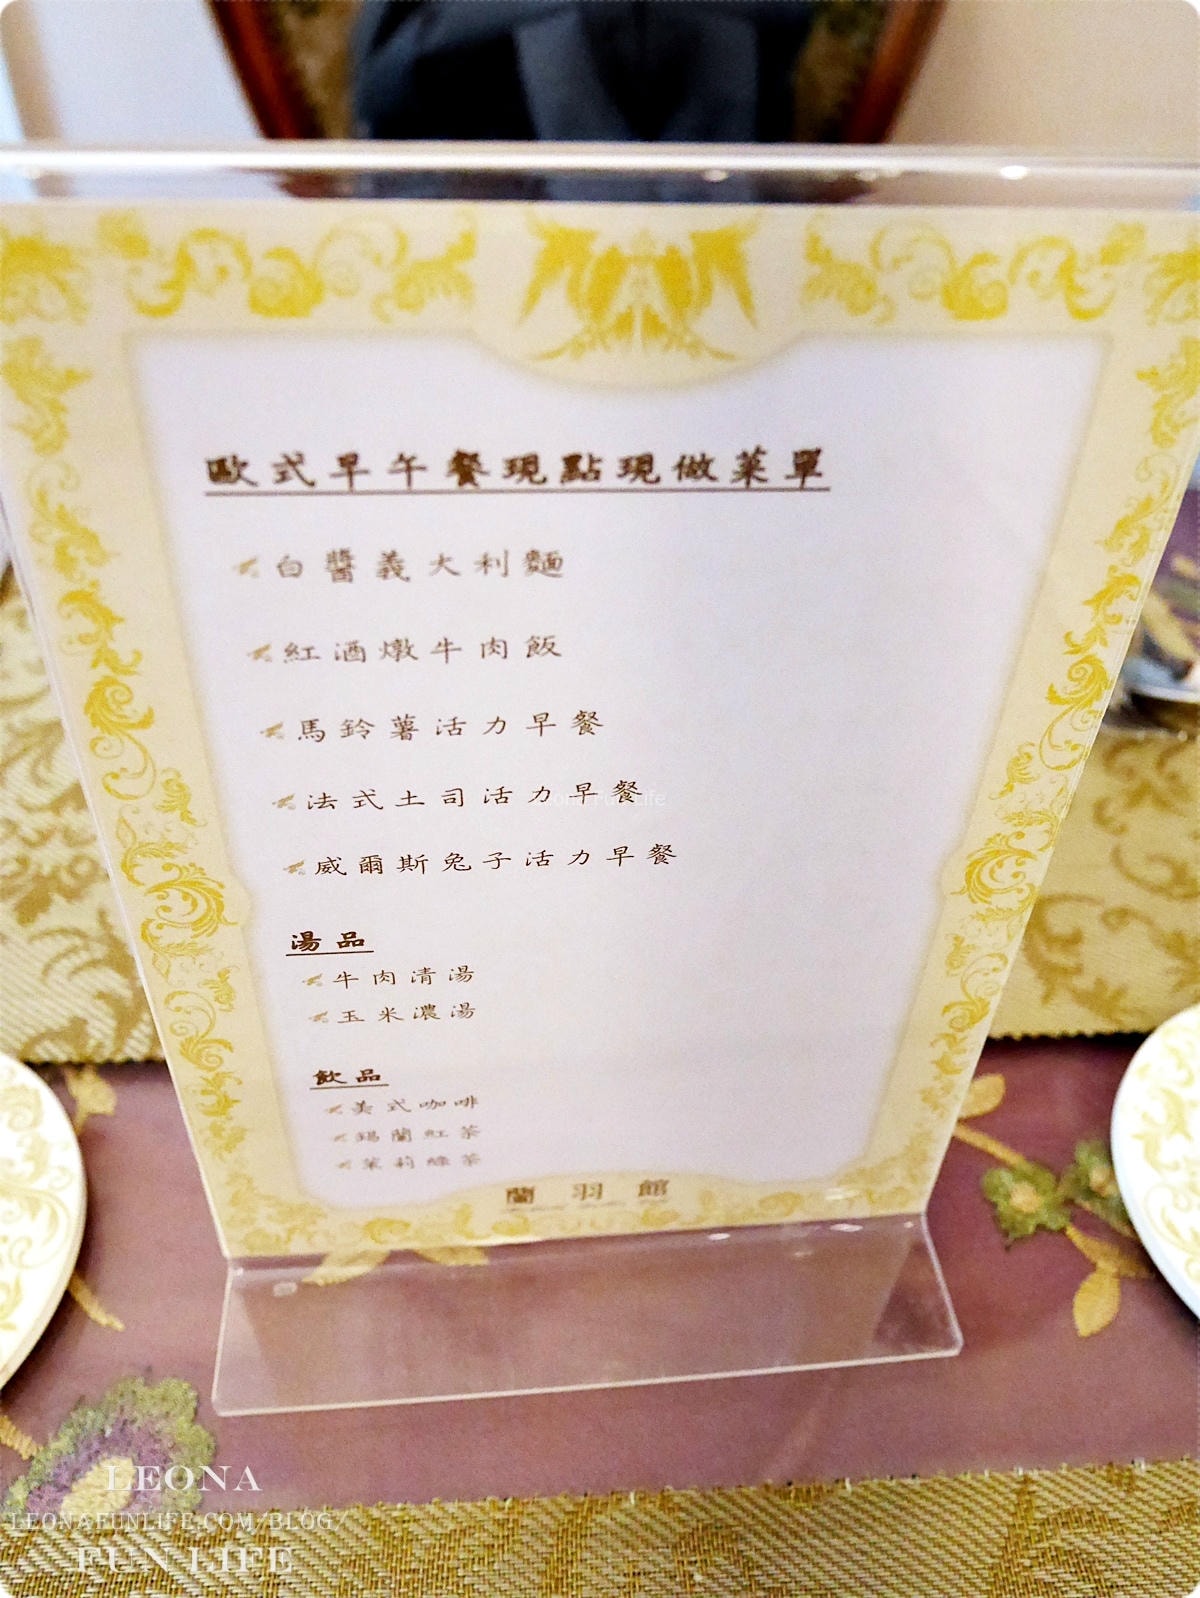 歐式早午餐現點現做菜單
白醬義大利麵
紅酒燉牛肉飯
馬鈴薯活力早餐
法式土司活力早餐
威爾斯兔子活力早餐
湯品
牛肉清湯
玉米濃湯
飲品
美式咖啡
錫蘭紅茶
茉莉綠茶
蘭羽館
LEONA
LEONAFUNLIFE.COM/BLOG/
FUN LIFE